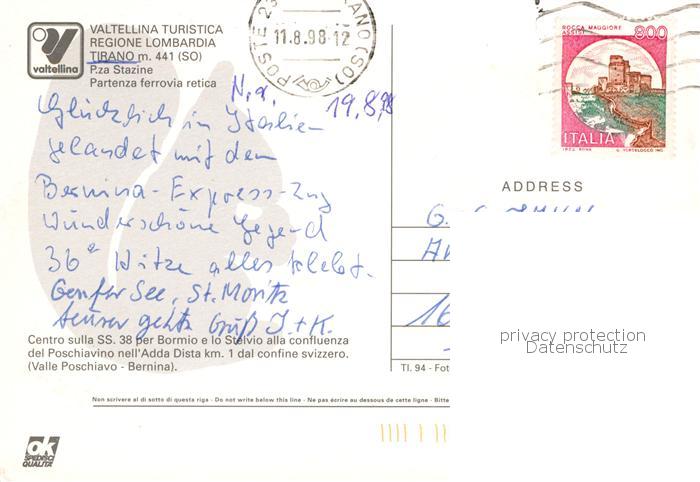 VALTELLINA TURISTICA
REGIONE LOMBARDIA
TIRANO m. 441 (SO)
P.za Stazine
Partenza ferrovia retica
valtellina
POSTE 23 ANO (SO)
11.8.98-12
ROCCA MAGGIORE
ASSISI
800
ITALIA
I.P.Z.S. ROMA
N.a. 19.8.98
Glücklich in Italien
gelandet mit dem
Bernina-Express-Zug
Wunderschöne Gegend
36° Hitze alles klebt.
Genfer See, St. Moritz
teurer gehts Gruß I.+K.
Centro sulla SS. 38 per Bormio e lo Stelvio alla confluenza
del Poschiavino nell'Adda Dista km. 1 dal confine svizzero.
(Valle Poschiavo - Bernina).
ADDRESS
G.
16
Tl. 94 - Fot
Non scrivere al di sotto di questa riga - Do not write below this line - Ne pas écrire au dessous de cette ligne - Bitte
privacy protection
Datenschutz
ok
SPEDISCI
QUALITÀ